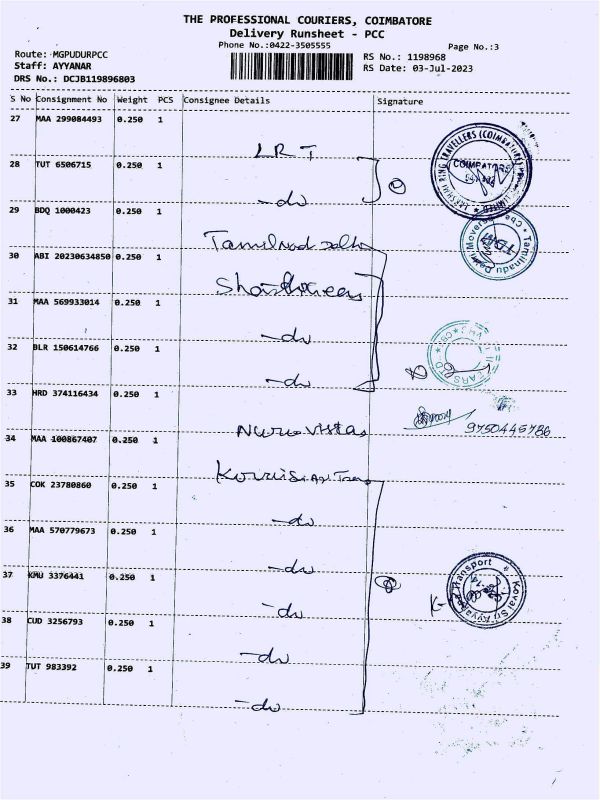 THE PROFESSIONAL COURIERS, COIMBATORE
Delivery Runsheet - PCC
Phone No.:0422-3505555
Page No.:3
Route: MGPUDURPCC
Staff: AYYANAR
DRS No.: DCJB119896803
RS No.: 1198968
RS Date: 03-Jul-2023
S No Consignment No Weight PCS Consignee Details Signature
27 MAA 299084493 0.250 1
LRT
28 TUT 6506715 0.250 1
-do
29 BDQ 1000423 0.250 1
Tamilnad
30 ABI 20230634850 0.250 1
31 MAA 569933014 0.250 1
-do
32 BLR 150614766 0.250 1
-do
33 HRD 374116434 0.250 1
9750445786
34 MAA 100867407 0.250 1
35 COK 23780860 0.250 1
-do
36 MAA 570779673 0.250 1
-do
37 KMU 3376441 0.250 1
-do
38 CUD 3256793 0.250 1
-do
39 TUT 983392 0.250 1
-do
COIMBATORE
Tamilnadu Delhi Movers
Transport